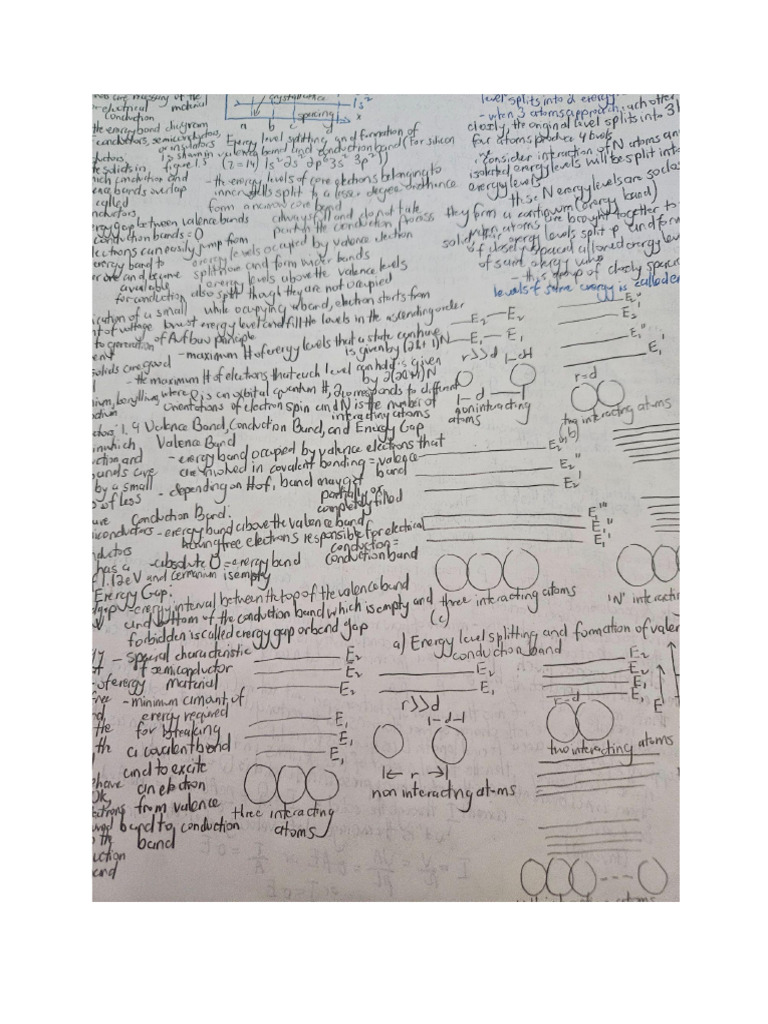 electrical material
conduction
the energy band diagram
conductors, semiconductors,
or insulators
is shown in
figure 1.5
nich conduction and
ence bands overlap
called
nductors
rgy gap between valence bands
conduction bands = 0
lectrons can easily jump from
energy band to
available
for conduction
ication of a small
nt of voltage
to generation of
solids are good
crystalline
spacing
1s²
a b c d x
Energy level splitting and formation of
valence band and conduction band (for silicon
(z = 14) 1s² 2s² 2p⁶ 3s² 3p²))
- the energy levels of core electrons belonging to
inner shells split to a lesser degree and hence
form a narrow core band
always fill and do not take
part in the conduction process
- energy levels occupied by valence electron
split now and form wider bands
- energy levels above the valence levels
also split though they are not occupied
while occupying a band, electron starts from
lowest energy level and fill the levels in the ascending order
of Aufbau principle
- maximum # of energy levels that a state can have
is given by (2l+1)N
- the maximum # of electrons that each level can hold is given
by 2(2l+1)N
where l is an orbital quantum #, 2 corresponds to different
orientations of electron spin and N is the number of
interacting atoms
1.4 Valence Band, Conduction Band, and Energy Gap
Valence Band
- energy band occupied by valence electrons that
are involved in covalent bonding = valence
band
- depending on # of, band may get
partially or
completely filled
Conduction Band:
- energy band above the valence band
having free electrons responsible for electrical
conduction =
conduction band
- absolute 0 = energy band
is empty
1.12 eV and Germanium
Energy Gap:
- energy interval between the top of the valence band
and bottom of the conduction band which is empty and
forbidden is called energy gap or band gap
- special characteristic
of semiconductor
material
- minimum amount of
energy required
for breaking
a covalent bond
and to excite
an electron
from valence
band to conduction
band
level splits into 2 energy
- when 3 atoms approach each other
closely, the original level splits into 3
four atoms produce 4 levels
- consider interaction of N atoms an
isolated energy levels will be split into
energy levels
these N energy levels are so clos
they form a continuum (energy band)
when atoms are brought together to
solid, their energy levels split p and form
of closely spaced allowed energy lev
of same energy value
- this group of closely spaced
levels of same energy is called en
E₂ E₂
E₁ E₁
r>>d
|-d-|
|- d -|
noninteracting
atoms
E₂''
E₂
E₁''
E₁
r=d
two interacting atoms
(b)
E₂'''
E₂''
E₂'
E₁'''
E₁''
E₁'
three interacting atoms
(c)
'N' interacti
a) Energy level splitting and formation of valen
conduction band
E₂
E₂
E₂
E₁
E₁
E₁
three interacting
atoms
E₂
E₁
r>>d
|-d-|
|← r →|
non interacting atoms
E₂
E₂
E₁
E₁
E
r=d
two interacting atoms